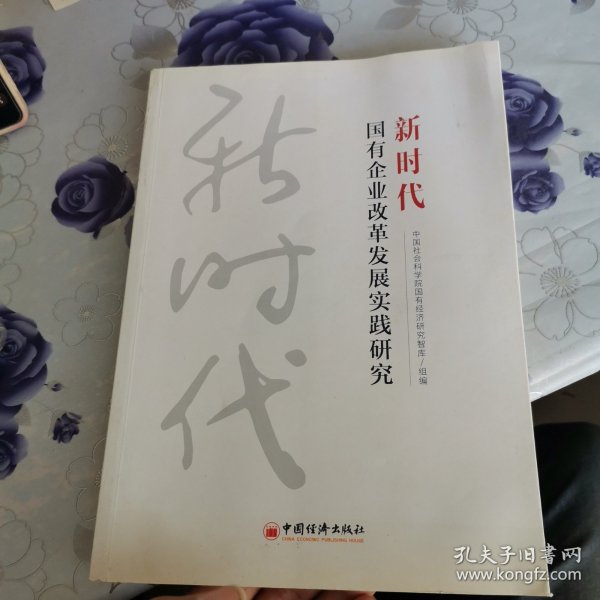 新时代
国有企业改革发展实践研究
中国社会科学院国有经济研究智库/组编
新时代
中国经济出版社
CHINA ECONOMIC PUBLISHING HOUSE
孔夫子旧書网
www.kongfz.com